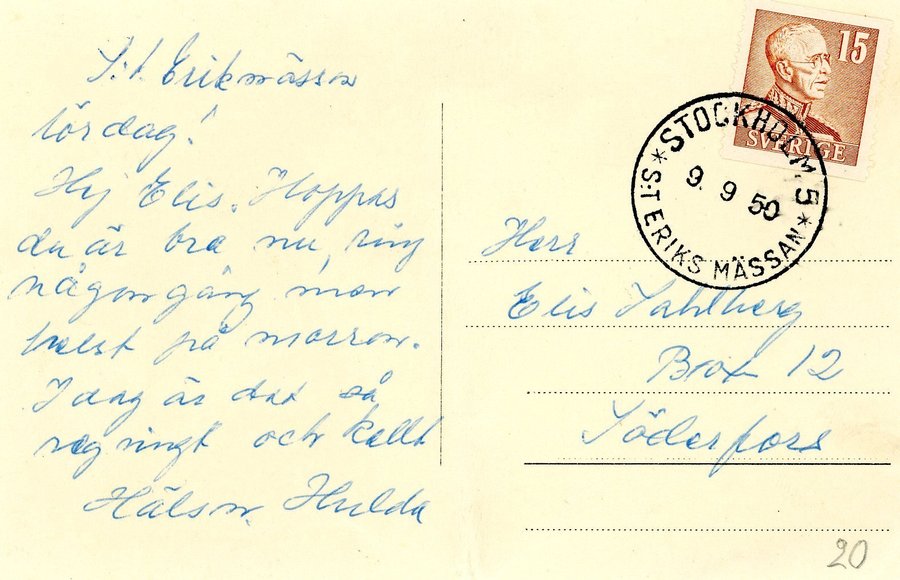 S:t Eriksmässan
lördag!
Hej Elis. Hoppas
du är bra nu, ring
någon gång men
helst på morron.
I dag är det så
regnigt och kallt
Hälsn. Hulda
15
SVERIGE
STOCKHOLM 5
9. 9 50
* S:T ERIKS MÄSSAN *
Herr
Elis Sahlberg
Box 12
Söderfors
20